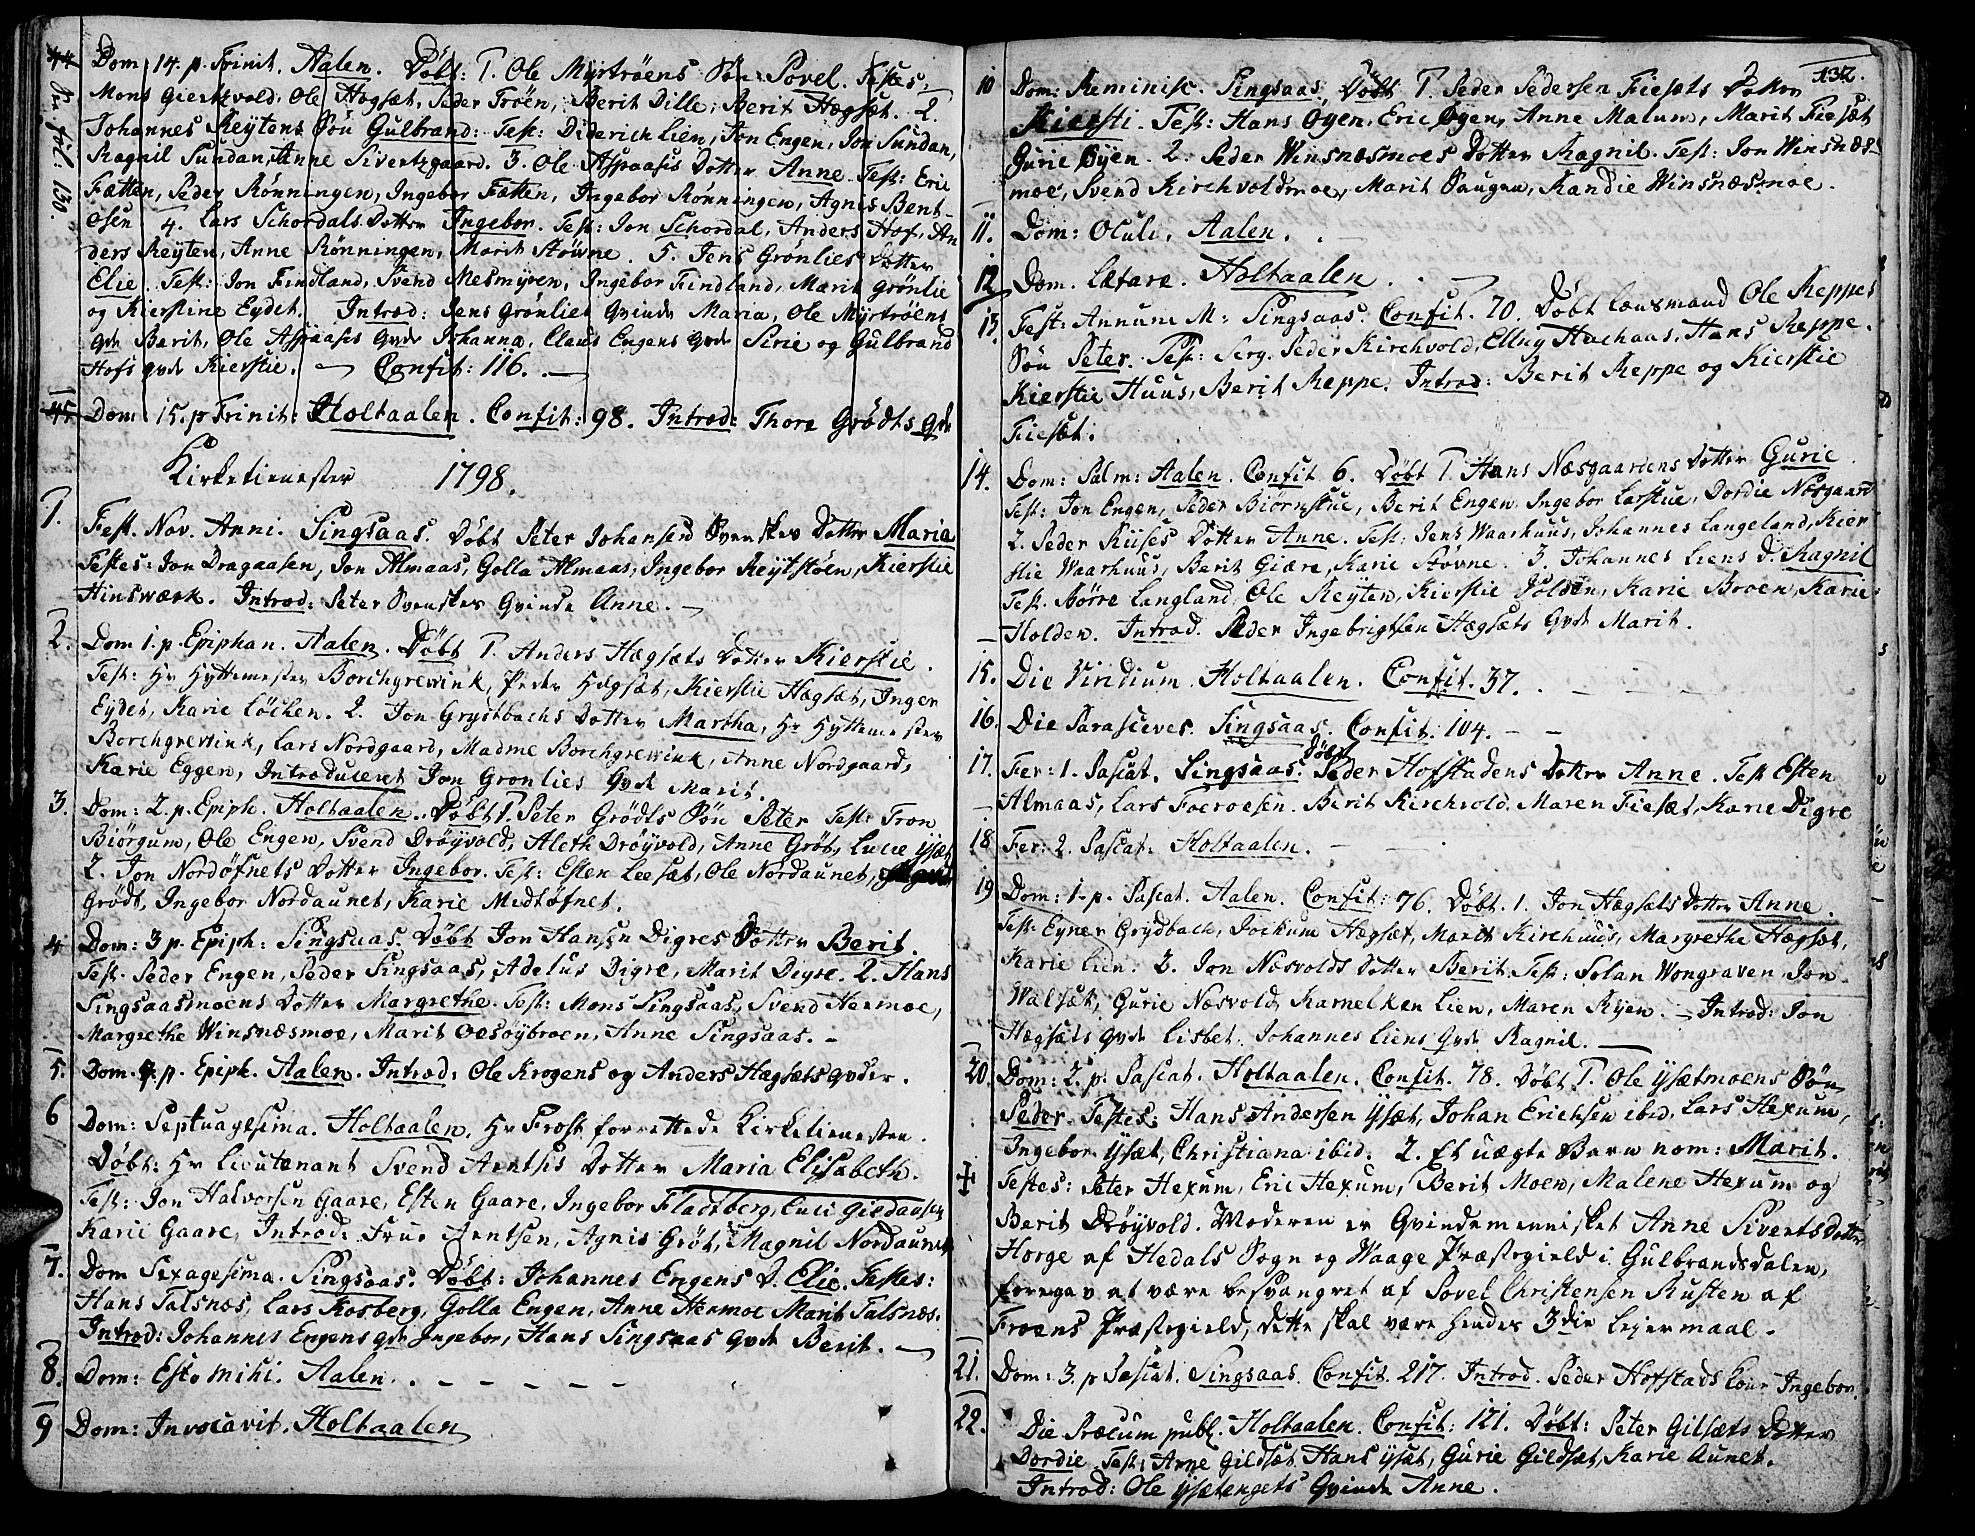 44 Dom: 14. p. Trinit. Aalen. Døbt: 1. Ole Myrtrøens Søn Povel. Testes:
Vid. fol. 130.
Mons Giertzvold, Ole Hægsæt, Peder Trøen, Berit Dille, Berit Hægsæt. 2.
Johannes Reytens Søn Gulbrand: Test: Diderich Lien, Jon Engen, Jon Sundan,
Ragnil Sundan, Anne Sivertzgaard. 3. Ole Aspaasis Dotter Anne. Test: Eric
Fætten, Peder Rønningen, Ingebor Fætten, Ingebor Rønningen, Agnis Bent-
osen 4. Lars Schordals Dotter Ingebor. Test: Jon Schordal, Anders Hof, An
ders Reyten, Anne Rønningen, Marit Støvne. 5. Jens Grønlies Dotter
Elie. Test: Jon Findland, Svend Mesmyren, Ingebor Findland, Marit Grønlie
og Kierstine Eydet. Introd: Jens Grønlies Qvinde Maria, Ole Myrtrøens
Qvde Berit, Ole Aspaasis Qvde Johanna, Claus Engens Qvde Sirie og Gulbrand
Hofs qvde Kierstie. — Confit: 116. —
45 Dom: 15. p Trinit: Holtaalen. Confit: 98. Introd: Thore Grødts Qvde
Kirketienester 1798.
1. Fest. Nov. Anni. Singsaas. Døbt Peter Johansen Svenskes Dotter Maria
Testes: Jon Dragaasen, Jon Almaas, Golla Almaas, Ingebor Reytstøen, Kierstie
Hinswærk. Introd: Peter Svenskes Qvinde Anne. —
2. Dom 1. p. Epiphan. Aalen. Døbt 1. Anders Hægsæts Dotter Kierstie.
Test: Hr Hyttemester Borchgrewink, Peder Hægsæt, Kierstie Hægsæt, Inger
Eydet, Karie Løcken. 2. Jon Grydtbachs Dotter Martha, Hr Hyttemester
Borchgrewink, Lars Nordgaard, Madme Borchgrewink, Anne Nordgaard,
Karie Eggen, Introduceret Jon Grønlies Qvde Marit.
3. Dom: 2. p. Epiph. Holtaalen. Døbt 1. Peter Grødts Søn Peter Test: Tron
Biørgum, Ole Engen, Svend Drøyvold, Aleth Drøyvold, Anne Grøt, Lucie Ysæt
2. Jon Nordøfnets Dotter Ingebor. Test: Esten Leesæt, Ole Nordaunet,
Grødt, Ingebor Nordaunet, Karie Midtøfnet.
4 Dom: 3 p. Epiph: Singsaas. Døbt Jon Hansen Digres Dotter Berit.
Test. Peder Engen, Peder Singsaas, Adelus Digre, Marit Digre. 2. Hans
Singsaasmoens Dotter Margrethe. Test: Mons Singsaas, Svend Hermoe,
Margrethe Winsnæsmoe, Marit Oesøybroen, Anne Singsaas. —
5. Dom. 4. p. Epiph. Aalen. Introd: Ole Krogens og Anders Hægsæts qvder.
6 Dom: Septuagesima. Holtaalen. Hr Frost forrettede Kirketienesten.
Døbt: Hr Lieutenant Svend Arntsis Dotter Maria Elisabeth.
Test: Jon Halvorsen Gaare, Esten Gaare, Ingebor Fladtberg,
Karie Gaare, Introd: Frue Arntsen, Agnis Grøt, Magnil Nordaunet
7. Dom Sexagesima. Singsaas. Døbt: Johannes Engens D. Elie. Testes:
Hans Talsnæs, Lars Kosberg, Golla Engen, Anne Hermoe Marit Talsnæs.
Introd: Johannes Engens qvde Ingebor, Hans Singsaas qvde Berit. —
8. Dom: Esto mihi. Aalen. — — — — —
9 Dom: Invocavit. Holtaalen
132.
10 Dom: Reminisc. Singsaas, Døbt 1. Peder Pedersen Fiesæts Dotter
Kiersti. Test: Hans Øyen, Eric Øyen, Anne Malum, Marit Fiesæt
Gurie Øyen. 2. Peder Winsnæsmoes Dotter Ragnil. Test: Jon Winsnæs-
moe, Svend Kirchvoldmoe, Marit Haugen, Randie Winsnæsmoe.
11. Dom: Oculi, Aalen.
12 Dom. Lætare. Holtaalen.
13. Fest: Annunc M: Singsaas. Confit. 70. Døbt Lensmand Ole Reppes
Søn Peter. Test: Serg. Peder Kirchvold, Ellng Huchaas, Hans Reppe.
Kierstie Huus, Berit Reppe. Introd: Berit Reppe og Kierstie
Fiesæt.
14. Dom: Palm: Aalen. Confit 6. Døbt 1. Hans Næsgaardens Dotter Gurie.
Test: Jon Engen, Peder Biørnstue, Berit Engen Ingebor Larstue, Dordie Næsgaard
2. Peder Kiises Dotter Anne. Test: Jens Waarhuus, Johannes Langeland, Kier
stie Waarhuus, Berit Giære, Karie Støvne. 3. Johannes Liens D. Ragnil
Test. Børre Langland, Ole Reyten, Kierstie Golden, Karie Broen, Karie
Holden. Introd. Peder Ingebrigtsen Hægsæts Qvde Marit.
15. Die Viridium Holtaalen. Confit. 37. — — —
16. Die Parasceves. Singsaas. Confit: 104. — —
17. Fer: 1. Pascat. Singsaas. Døbt Peder Hofstadens Dotter Anne. Test Esten
Almaas, Lars Foeroesen. Berit Kirchvold. Maren Fiesæt, Karie Digre
18. Fer: 2. Pascat. Holtaalen. —
19 Dom: 1. p. Pascat. Aalen. Confit: 76. Døbt. 1. Jon Hægsæts Dotter Anne.
Test: Eyner Grydbach, Jochum Hægsæt, Marit Kirchuus, Margrethe Hægsæt,
Karie Lien. 3. Jon Næsvolds Dotter Berit. Test: Polan Wongraven Jon
Walsæt, Gurie Næsvold, Karnelken Lien, Maren Ryen. — Introd: Jon
Hægsæts Qvde Lisbet. Johannes Liens Qvde Ragnil. —
20 Dom: 2. p. Pascat. Holtaalen. Confit. 78. Døbt 1. Ole Ysætmoens Søn
Peder. Testes: Hans Andersen Ysæt, Johan Erichsen ibid, Lars Hexum,
Ingebor Ysæt, Christiana ibid. 2. Et uægte Barn nom: Marit.
Testes: Peter Hexum, Eric Hexum, Berit Moen, Malene Hexum og
Berit Drøyvold. Moderen er Qvindemennisket Anne Siverts Dotter
Horge af Hedals Sogn og Waage Præstegield i Gulbrandsdalen,
foregav at være besvangret af Povel Christensen Rusten af
Froens Præstegield, dette skal være hendes 3die Lejermaal.
21. Dom: 3. p Pascat. Singsaas. Confit. 217. Introd. Peder Hofstads Kone Ingebor.
22. Die Precum publ. Holtaalen. Confit: 121. Døbt: Peter Gilsæts Dotter
Dordie. Test: Arne Gildsæt, Hans Ysæt, Gurie Gildsæt, Karie Aunet.
Introd: Ole Ysætengets Qvinde Anne.